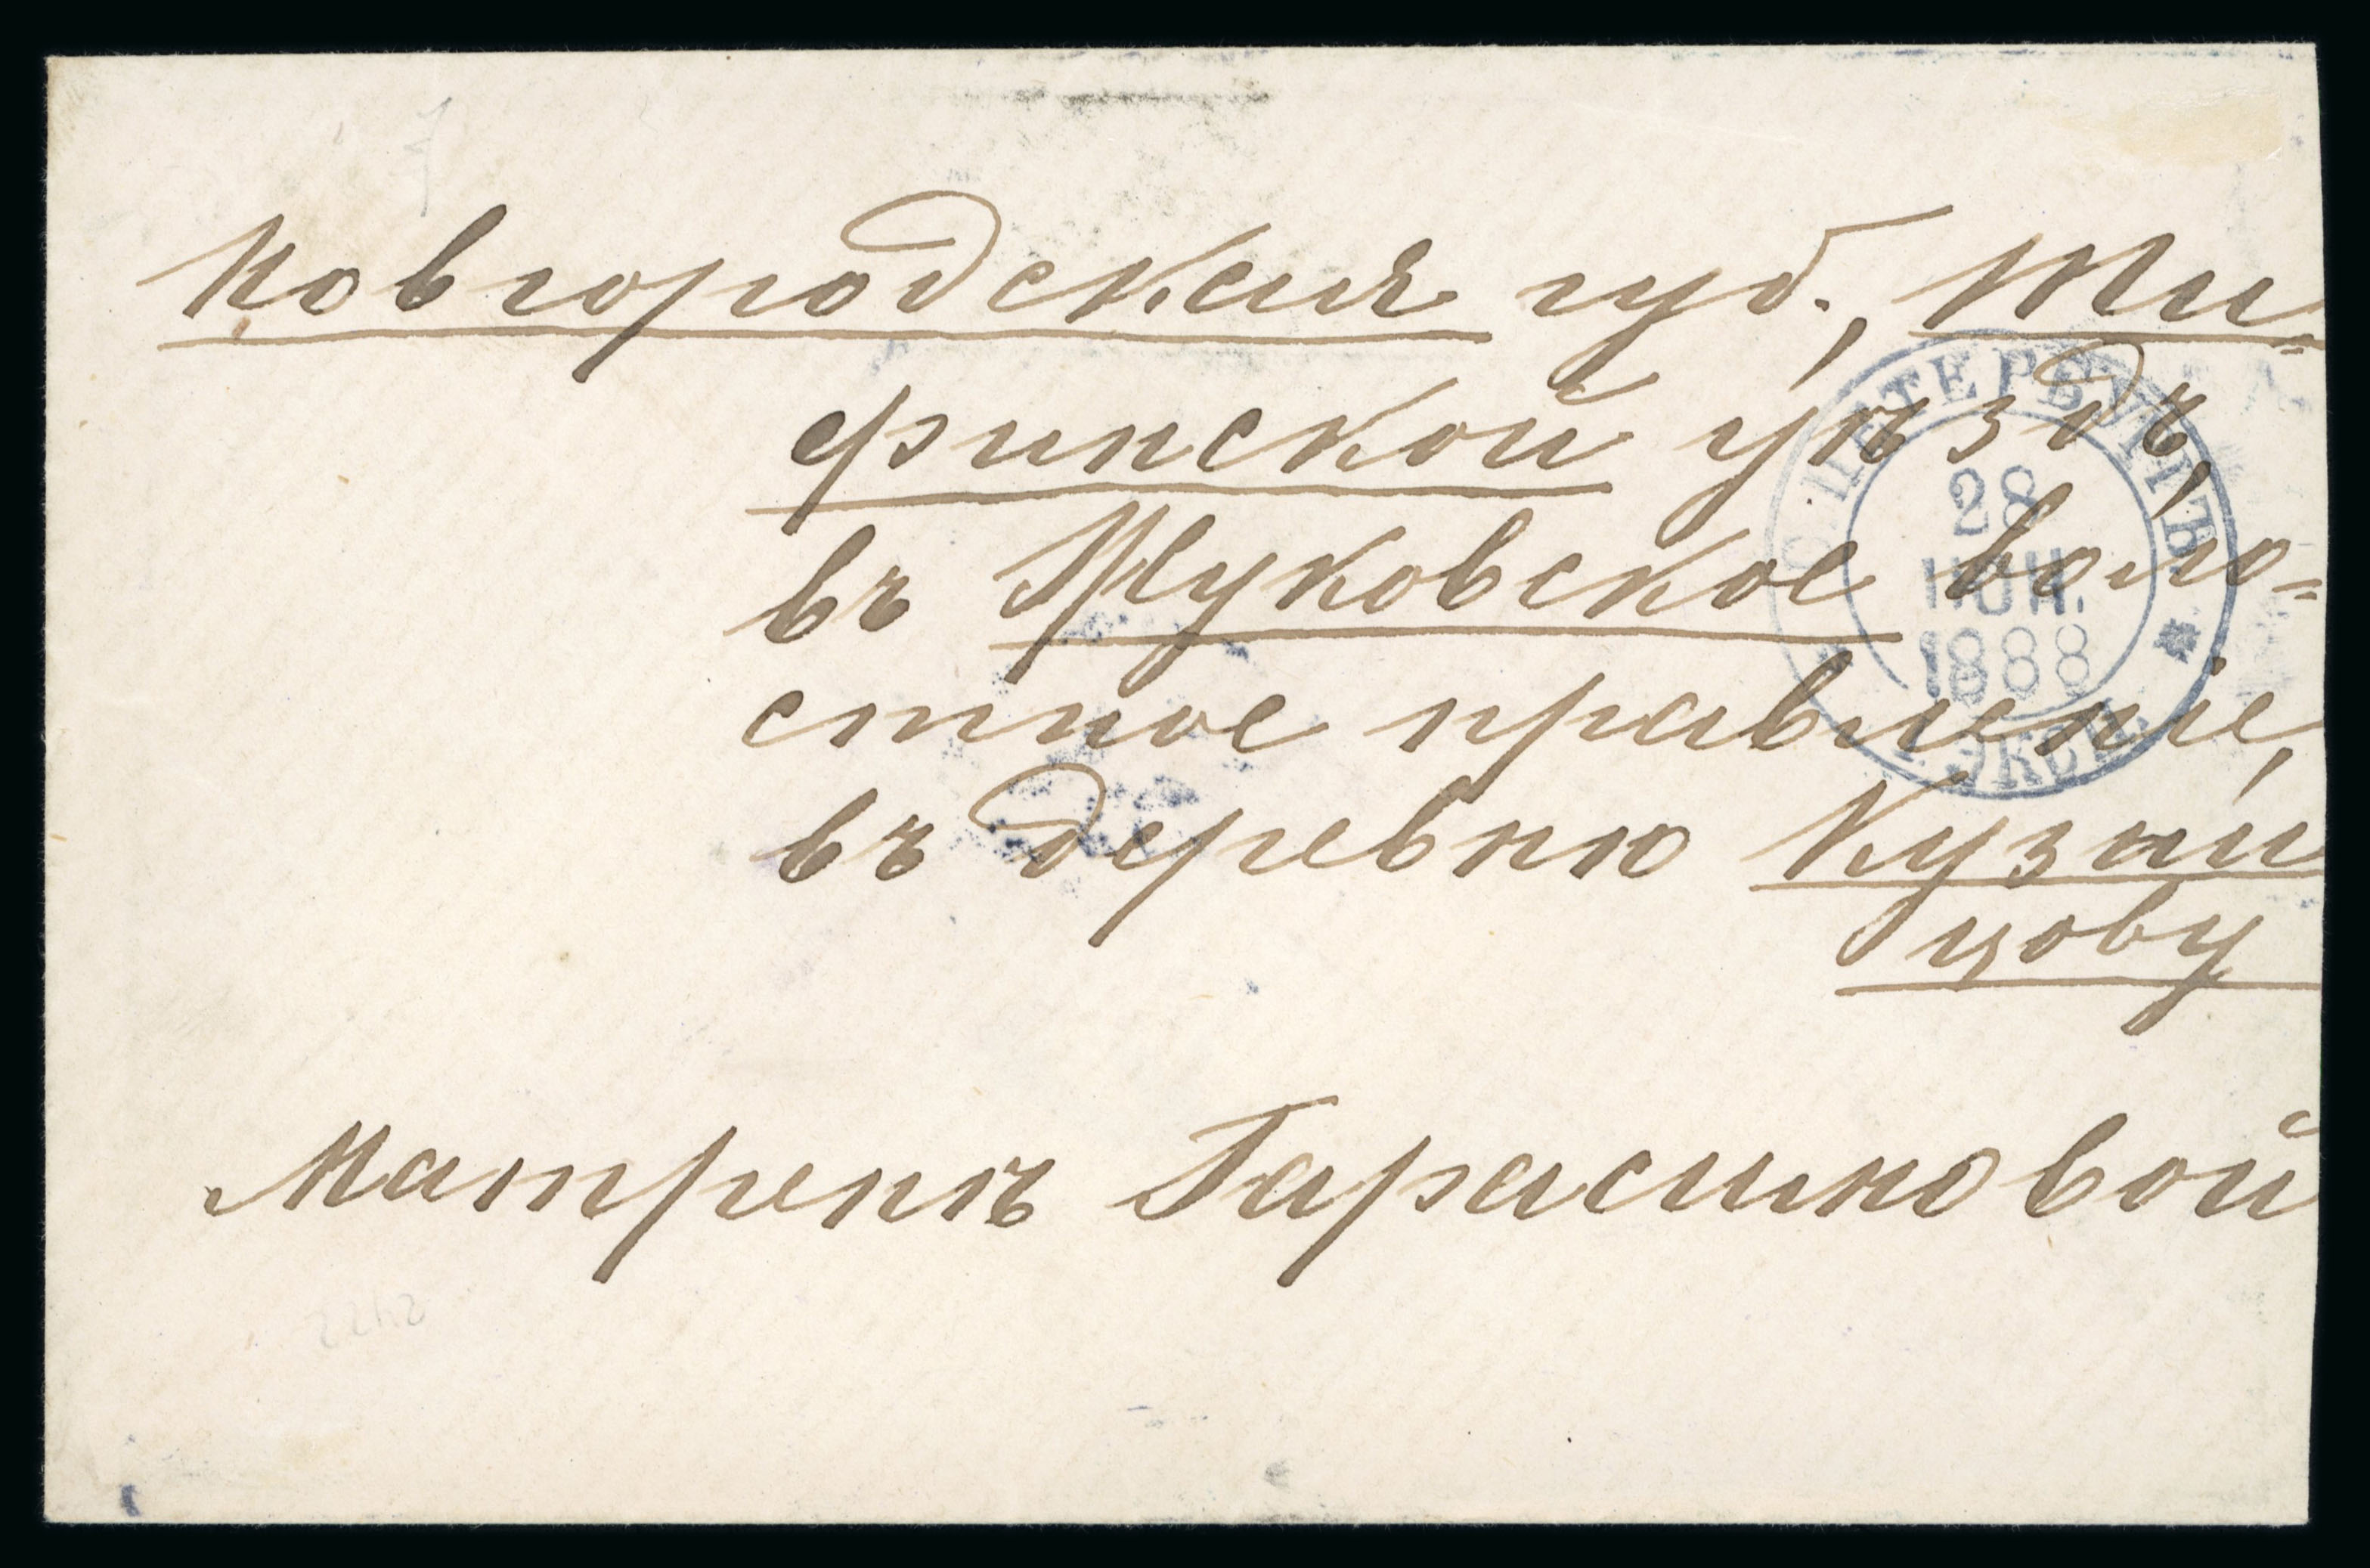 Новгородская губ., Ти-
финской уѣздъ,
въ Жуковское воло=
стное правленіе,
въ деревню
цову
Матренѣ Гарасимовой
С. ПЕТЕРБУРГЪ.
28
ІЮН.
1888
ЭКСП.